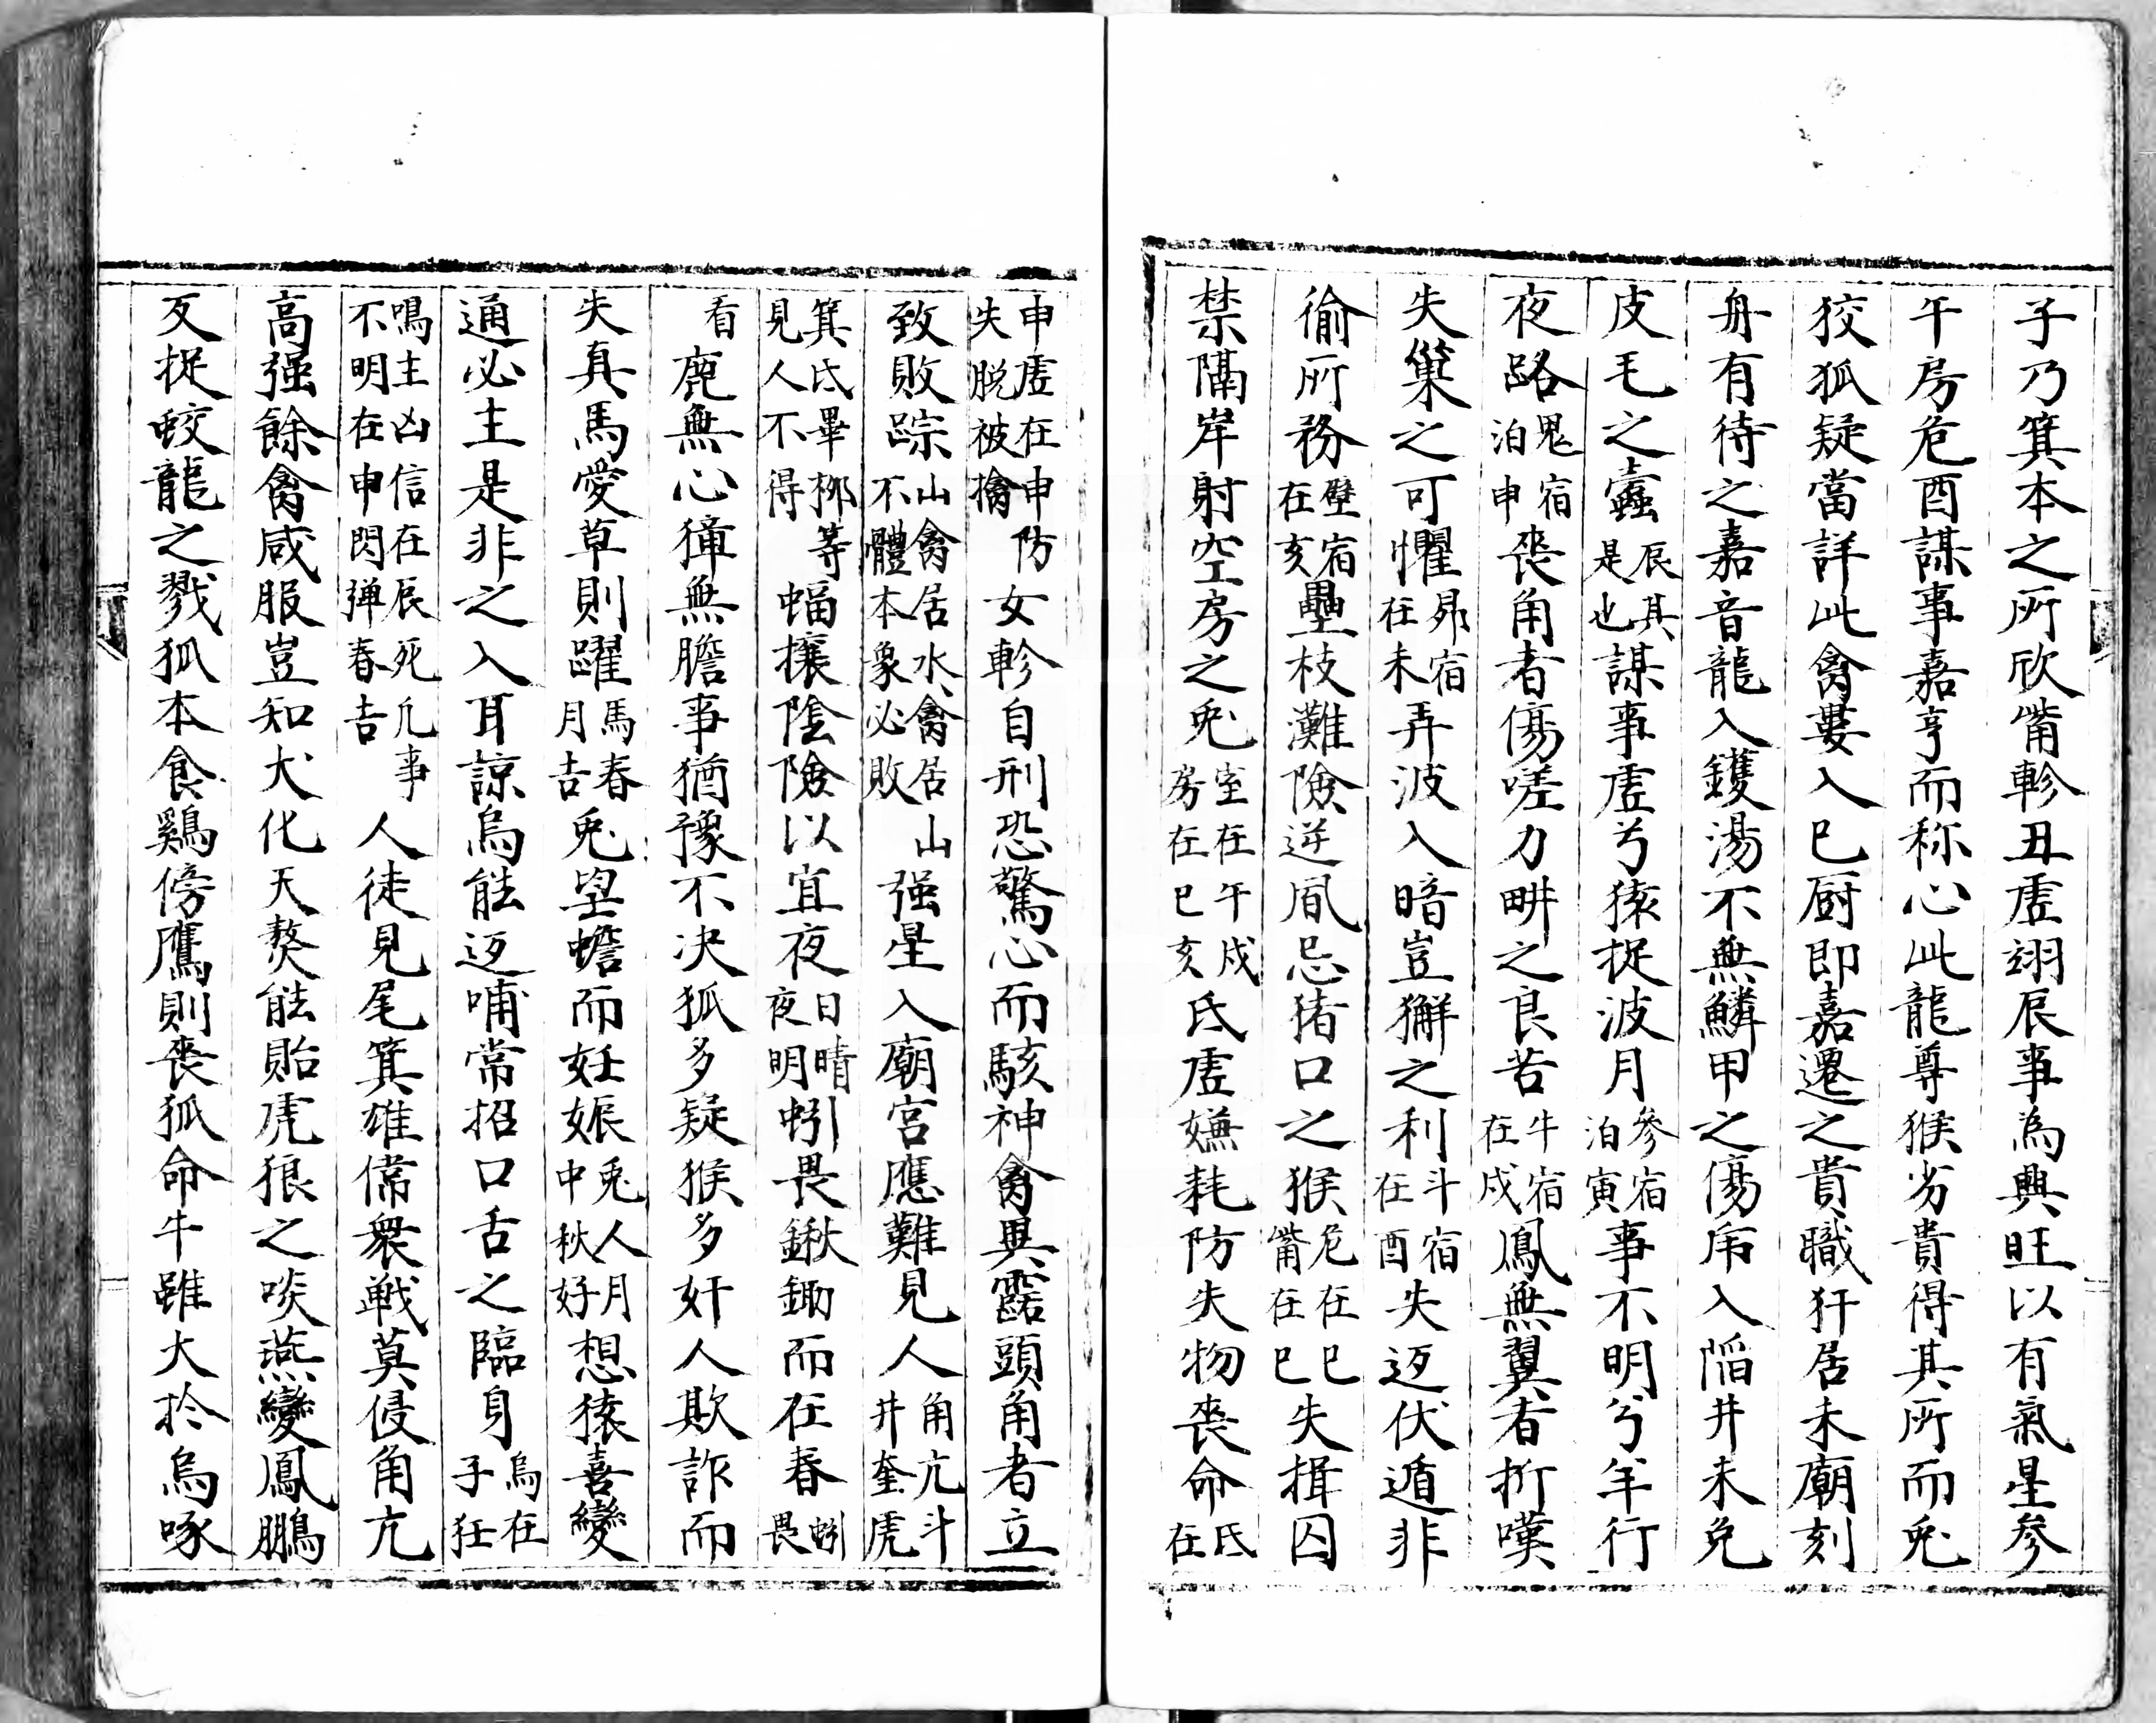 子乃箕本之所欣觜軫丑虛翊辰事為興旺以有氣星参
午房危酉謀事嘉亨而称心此龍尊猴劣貴得其所而兎
狡狐疑當詳此禽婁入巳厨即嘉遷之貴職犴居未廟刻
舟有待之嘉音龍入鑊湯不無鱗甲之傷乕入陷井未免
皮毛之蠹辰其是也謀事虛兮猿捉波月參宿泊寅事不明兮羊行
夜路鬼宿泊申喪角者傷嗟力畊之良苦牛宿在戍鳳無翼者折嘆
失巢之可懼昴宿在未弄波入暗豈獬之利斗宿在酉失迓伏遁非
偷所務壁宿在亥壘枝灘險逆風忌猪口之猴危在巳觜在巳失揖囚
禁隔岸射空房之兎室在午戍房在巳亥氐虛嫌耗防失物喪命氐在
申虛在申防失脱被擒女軫自刑恐驚心而駭神禽異露頭角者立
致敗踪山禽居水禽居山不體本象必敗强星入廟宮應難見人角亢斗井奎虎
箕氐畢柳等見人不得蝠攘陰險以宜夜日晴夜明蚓畏鍬鋤而在春蚓畏
看鹿無心獐無膽事猶豫不决狐多疑猴多奸人欺詐而
失真馬愛草則躍馬春月吉兎望蟾而妊娠兎人月中秋好想猿喜變
通必主是非之入耳諒烏能迓哺常招口舌之臨身烏在子狂
鳴主凶信在辰死凢事不明在申閃弹春吉人徒見尾箕雄俻衆戰莫侵角亢
高强餘禽咸服豈知犬化天獒能貽虎狼之啖燕變鳳鵬
反捉蛟龍之戮狐本食鷄傍鷹則喪狐命牛雖大於烏啄